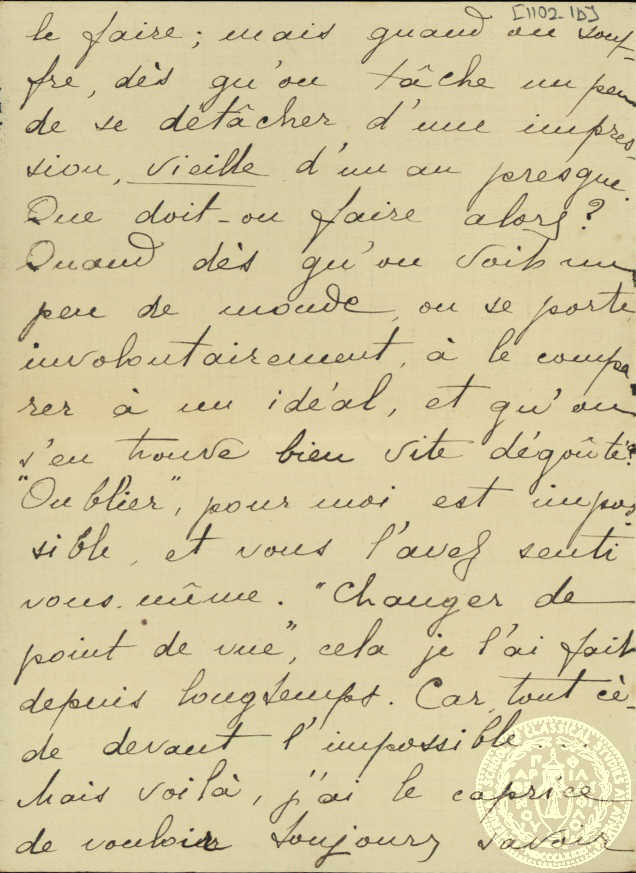 [1102-1b]
le faire; mais quand on souf-
fre, dès qu'on tâche un peu
de se détâcher d'une impres-
sion, vieille d'un an presque.
Que doit-on faire alors?
Quand dès qu'on voit un
peu de monde, on se porte
involontairement, à le compa
rer à un idéal, et qu'on
s'en trouve bien vite dégoûté?
"Oublier", pour moi est impos
sible, et vous l'avez senti
vous-même. "Changer de
point de vue", cela je l'ai fait
depuis longtemps. Car, tout cè-
de devant l'impossible...
Mais voilà, j'ai le caprice
de vouloir toujours savoir